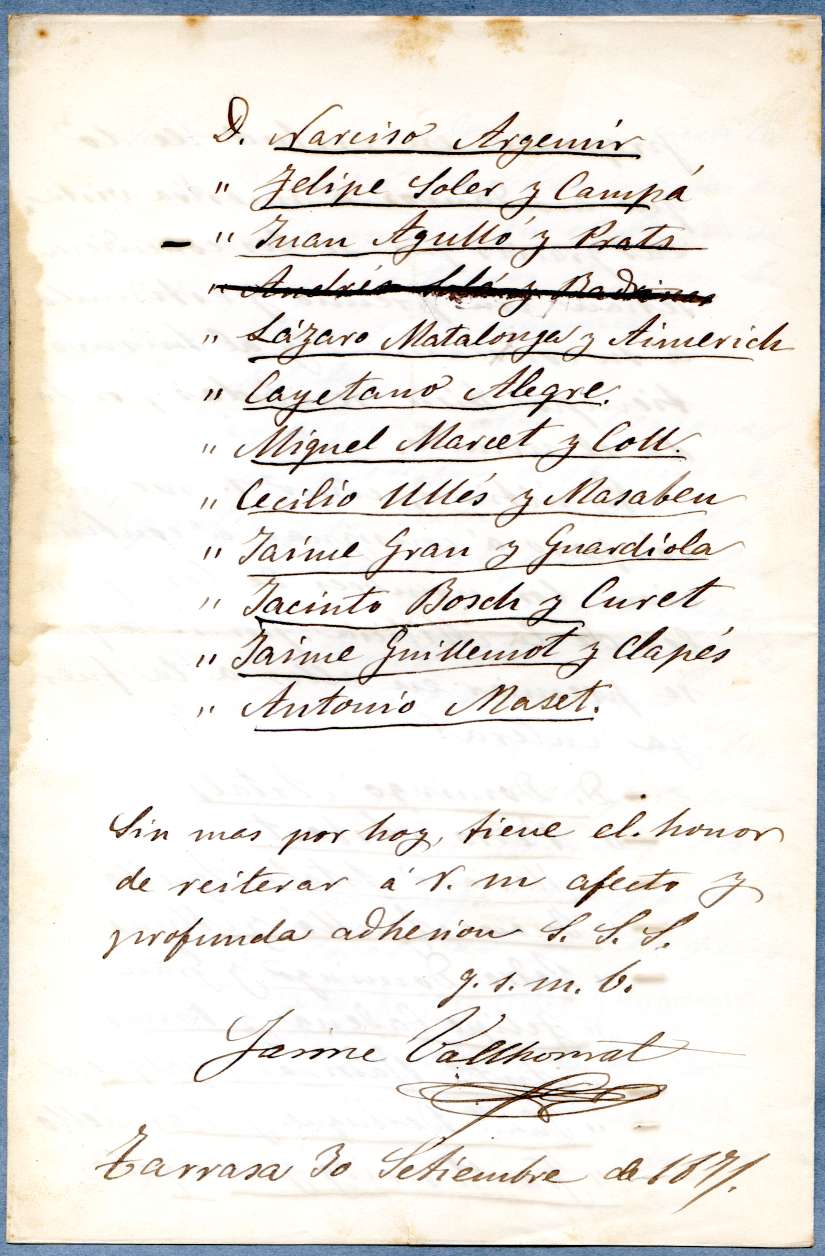 D. Narciso Argemir
" Felipe Soler y Campá
– " Juan Agulló y Prats
" Andrés Solá y Badrinas
" Lázaro Matalonga y Aimerich
" Cayetano Alegre.
" Miguel Marcet y Coll.
" Cecilio Ullés y Masabeu
" Jaime Grau y Guardiola
" Jacinto Bosch y Curet
" Jaime Guillemot y Clapés
" Antonio Maset.
Sin mas por hoy, tiene el honor
de reiterar á V. su afecto y
profunda adhesion S. S. S.
q. s. m. b.
Jaime Vallhonrat
Tarrasa 30 Setiembre de 1871.